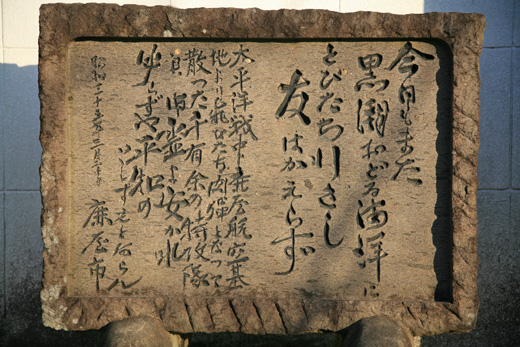 今日もまた
黒潮おどる海洋に
とびたち行きし
友はかえらず
太平洋戦中鹿屋航空基
地より飛びたち肉弾となつて
散つた千有余の特攻隊
員 霊よ安かれ
必ずや平和の
いしずえとならん
昭和三十 年三月二十 日
鹿屋市